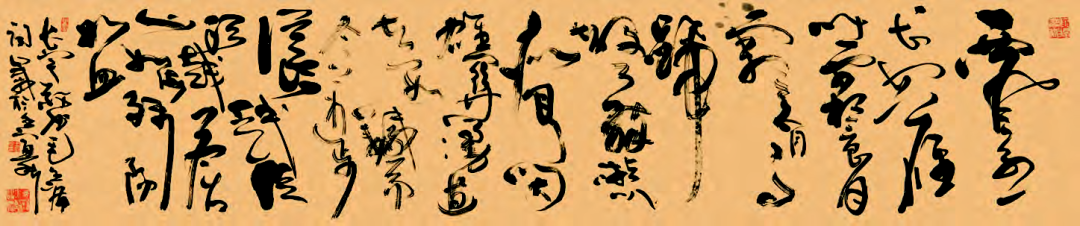 西风烈
长空雁
叫霜晨月
霜晨月马
蹄
声碎喇叭
声咽
雄关漫道
真如铁而
今迈步
从头越从
头越苍山
如海残阳
如血
毛主席
词